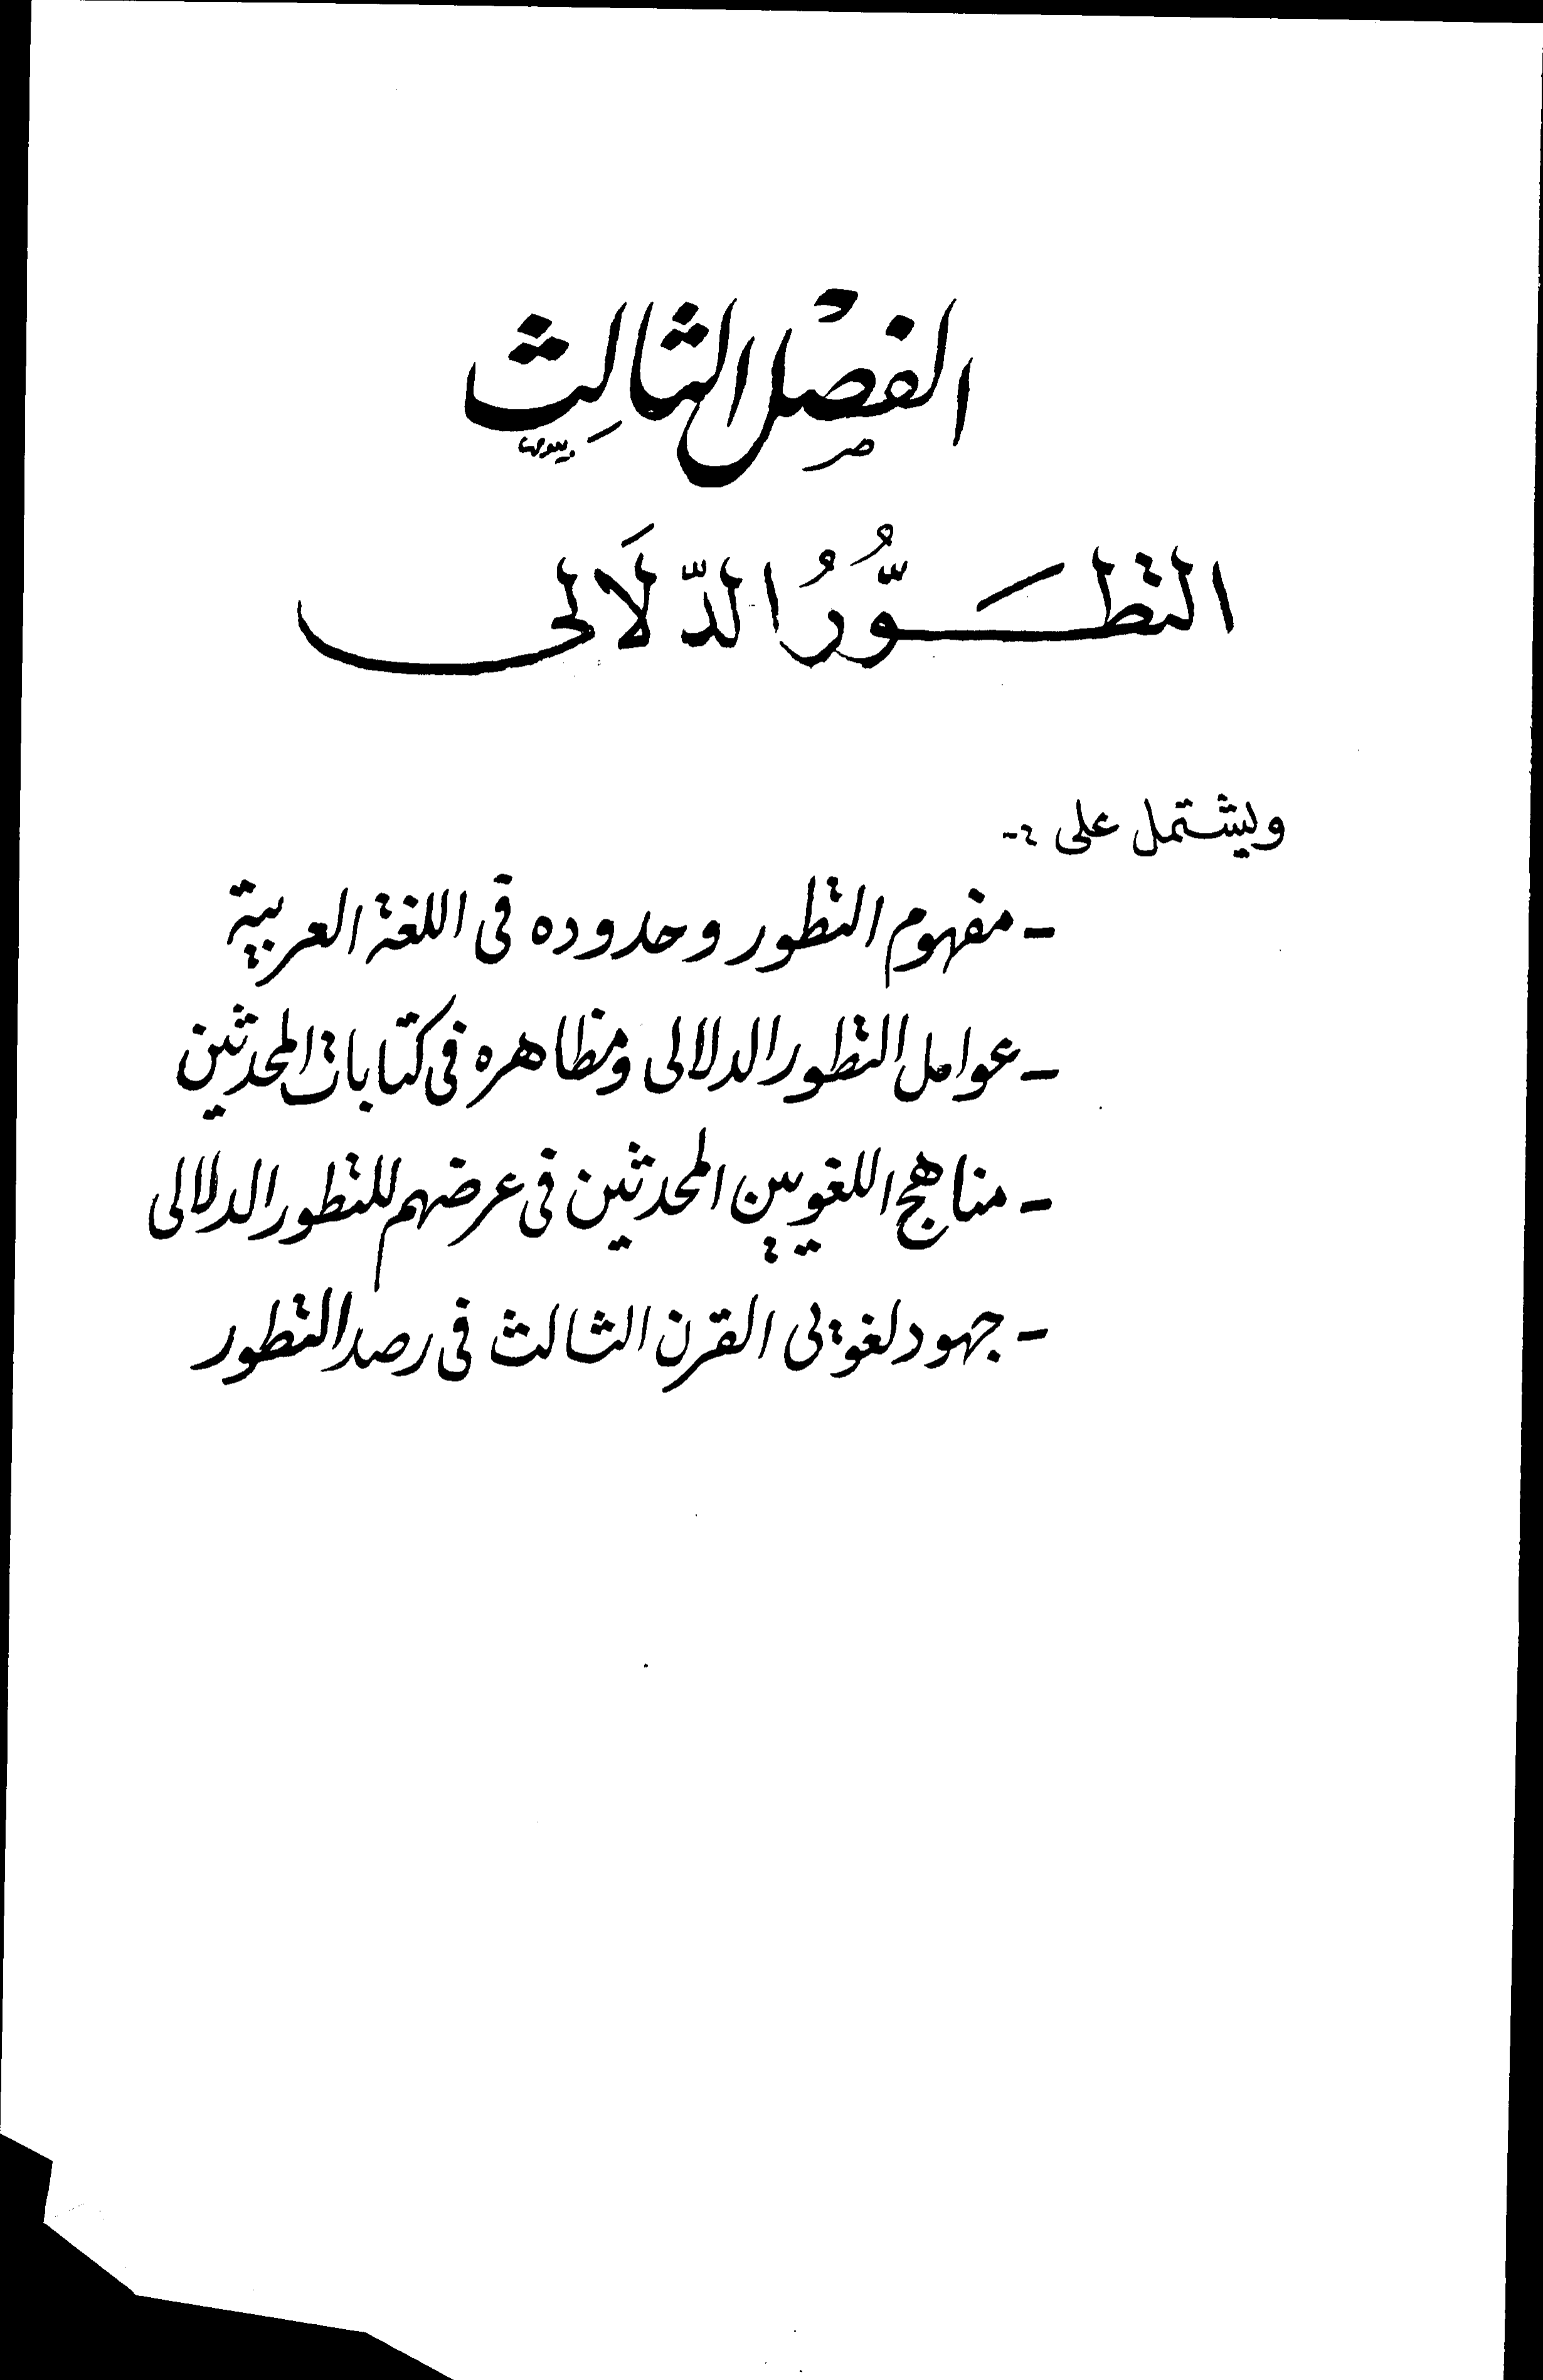 الفصْل الثالِث
التطَوُّرُ الدّلَالى
ويشتمل على :-
- مفهوم التطور وحدوده فى اللغة العربية
- عوامل التطور الدلالى ومظاهره فى كتابات المحدثين
- مناهج اللغويين المحدثين فى عرضهم للتطور الدلالى
- جهود لغويى القرن الثالث فى رصد التطور